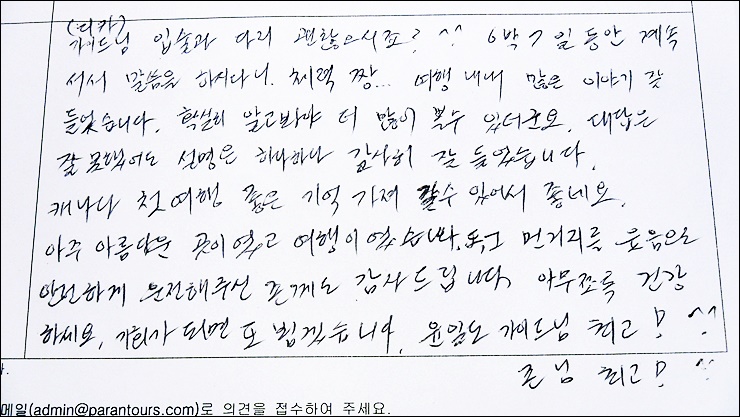 (디카)
가이드님 입술과 다리 괜찮으시죠? ^^ 6박 7일 동안 계속
서서 말씀을 하시다니. 체력 짱... 여행 내내 많은 이야기 잘
들었습니다. 확실히 알고봐야 더 많이 볼수 있더군요. 대답은
잘 못했어도 설명은 하나하나 감사히 잘 들었습니다.
캐나다 첫여행 좋은 기억 가져 갈수 있어서 좋네요.
아주 아름다운 곳이였고 여행이였습니다. 먼거리를 웃음으로
안전하게 운전해주신 존께도 감사드립니다. 아무쪼록 건강
하세요. 기회가 되면 또 뵙겠습니다. 윤일도 가이드님 최고! ^^
존님 최고! ^^
메일(admin@parantours.com)로 의견을 접수하여 주세요.